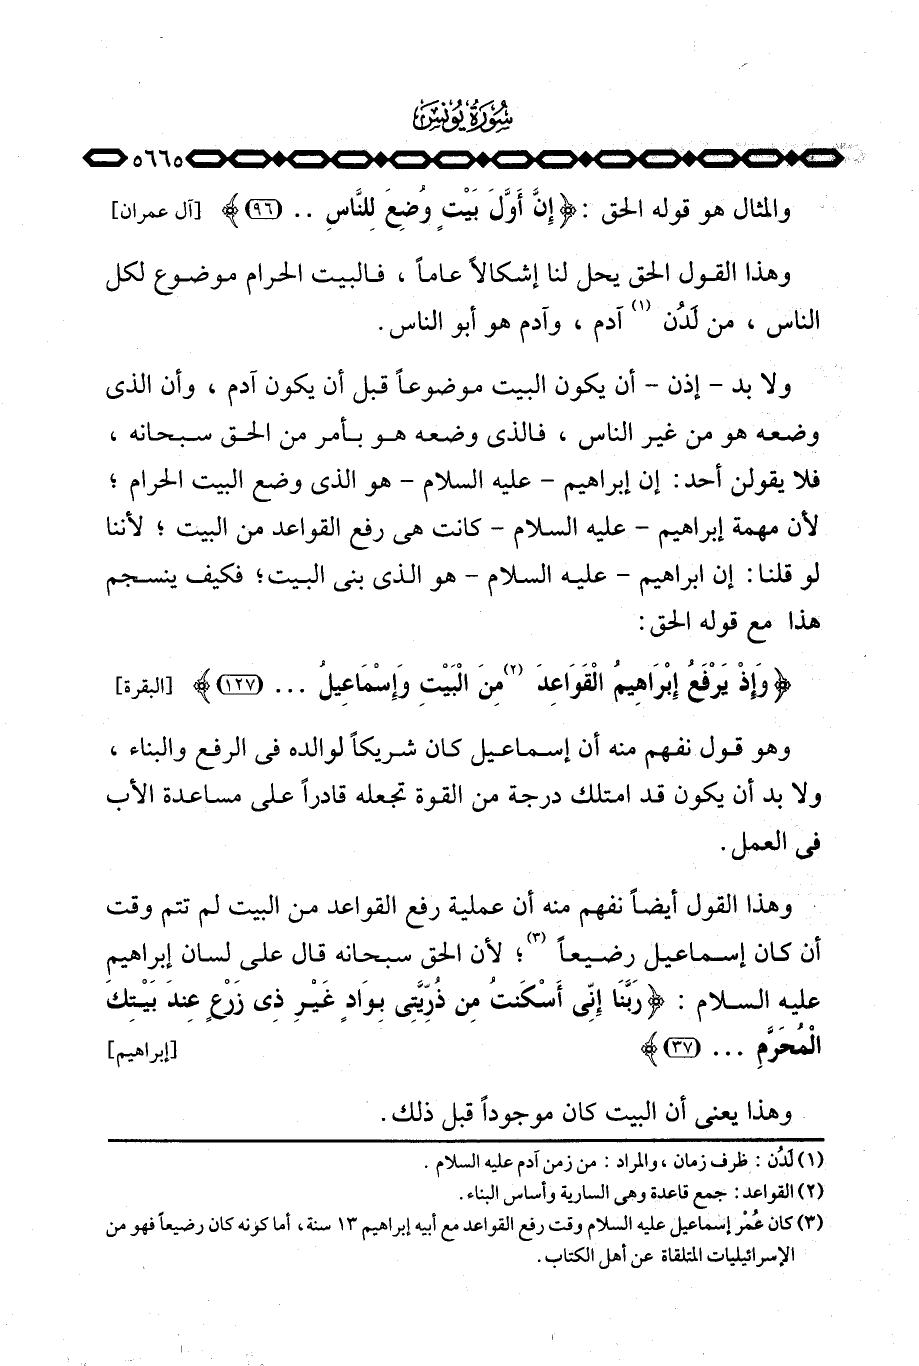 سُورَةُ يُونُسَ
٥٦٦٥
والمثال هو قوله الحق : ﴿ إِنَّ أَوَّلَ بَيْتٍ وُضِعَ لِلنَّاسِ .. (٩٦) ﴾ [آل عمران]
وهذا القول الحق يحل لنا إشكالاً عاماً ، فالبيت الحرام موضوع لكل
الناس ، من لَدُن (١) آدم ، وآدم هو أبو الناس.
ولا بد - إذن - أن يكون البيت موضوعاً قبل أن يكون آدم ، وأن الذى
وضعه هو من غير الناس ، فالذى وضعه هو بأمر من الحق سبحانه ،
فلا يقولن أحد: إن إبراهيم - عليه السلام - هو الذى وضع البيت الحرام ؛
لأن مهمة إبراهيم - عليه السلام - كانت هى رفع القواعد من البيت ؛ لأننا
لو قلنا: إن ابراهيم - عليه السلام - هو الذى بنى البيت؛ فكيف ينسجم
هذا مع قوله الحق:
﴿ وَإِذْ يَرْفَعُ إِبْرَاهِيمُ الْقَوَاعِدَ (٢) مِنَ الْبَيْتِ وَإِسْمَاعِيلُ ... (١٢٧) ﴾ [البقرة]
وهو قول نفهم منه أن إسماعيل كان شريكاً لوالده فى الرفع والبناء ،
ولا بد أن يكون قد امتلك درجة من القوة تجعله قادراً على مساعدة الأب
فى العمل.
وهذا القول أيضاً نفهم منه أن عملية رفع القواعد من البيت لم تتم وقت
أن كان إسماعيل رضيعاً (٣)؛ لأن الحق سبحانه قال على لسان إبراهيم
عليه السلام : ﴿ رَبَّنَا إِنِّى أَسْكَنتُ مِن ذُرِّيَّتِى بِوَادٍ غَيْرِ ذِى زَرْعٍ عِندَ بَيْتِكَ
الْمُحَرَّمِ ... (٣٧) ﴾ [إبراهيم]
وهذا يعنى أن البيت كان موجوداً قبل ذلك.
(١) لَدُن : ظرف زمان ، والمراد : من زمن آدم عليه السلام .
(٢) القواعد: جمع قاعدة وهى السارية وأساس البناء.
(٣) كان عُمْر إسماعيل عليه السلام وقت رفع القواعد مع أبيه إبراهيم ١٣ سنة، أما كونه كان رضيعاً فهو من
الإسرائيليات المتلقاة عن أهل الكتاب.